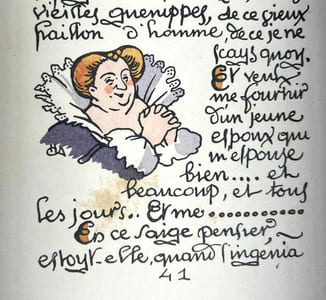 vieilles guenippes, de ce gieux
haillon d'homme, de ce je ne
sçays quoy.
Et veux
me fournir
d'un jeune
espoux qui
m'espouse
bien.... et
beaucoup, et tous
les jours.. Et me ..........
En ce saige penser,
estoyt-elle, quand l'ingénia
41